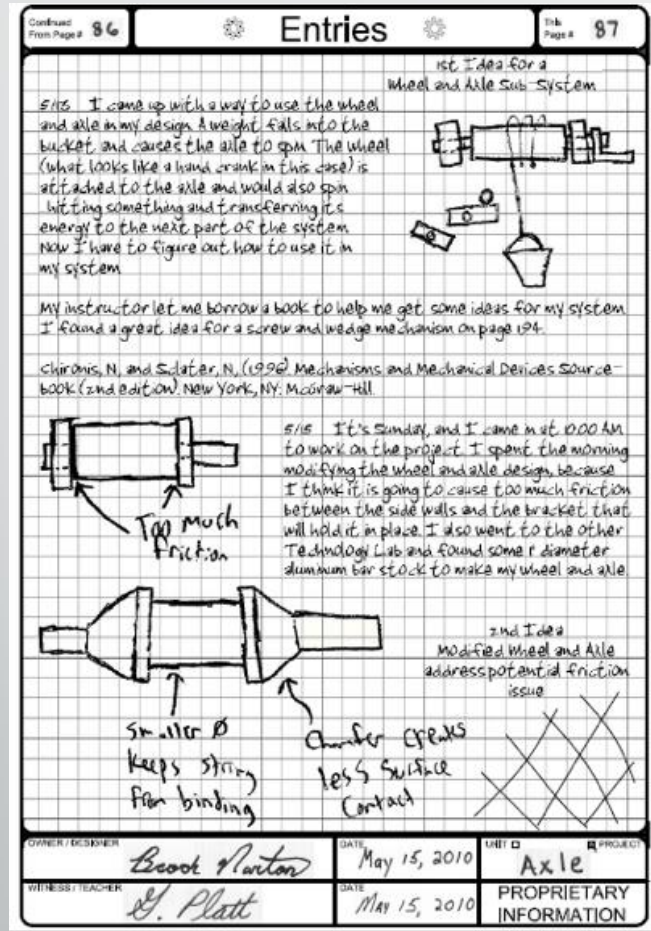 Continued From Page # 86
Entries
This Page # 87
1st Idea for a
Wheel and Axle Sub-System
5/13 I came up with a way to use the wheel
and axle in my design. A weight falls into the
bucket and causes the axle to spin. The wheel
(what looks like a hand crank in this case) is
attached to the axle and would also spin
hitting something and transferring its
energy to the next part of the system.
Now I have to figure out how to use it in
my system
My instructor let me borrow a book to help me get some ideas for my system.
I found a great idea for a screw and wedge mechanism on page 194.
Chironis, N, and Sclater, N, (1996). Mechanisms and Mechanical Devices Source-
book (2nd edition). New York, NY: McGraw-Hill.
5/15 It's Sunday, and I came in at 10:00 AM
to work on the project. I spent the morning
modifying the wheel and axle design, because
I think it is going to cause too much friction
between the side walls and the bracket that
will hold it in place. I also went to the other
Technology Lab and found some diameter
aluminum bar stock to make my wheel and axle.
Too Much
Friction
2nd Idea
Modified Wheel and Axle
address potential friction
issue
Smaller Ø
Keeps string
From binding
Chamfer Creates
less Surface
Contact
OWNER / DESIGNER
Brook Norton
DATE
May 15, 2010
UNIT
PROJECT
Axle
WITNESS / TEACHER
G. Platt
DATE
May 15, 2010
PROPRIETARY
INFORMATION